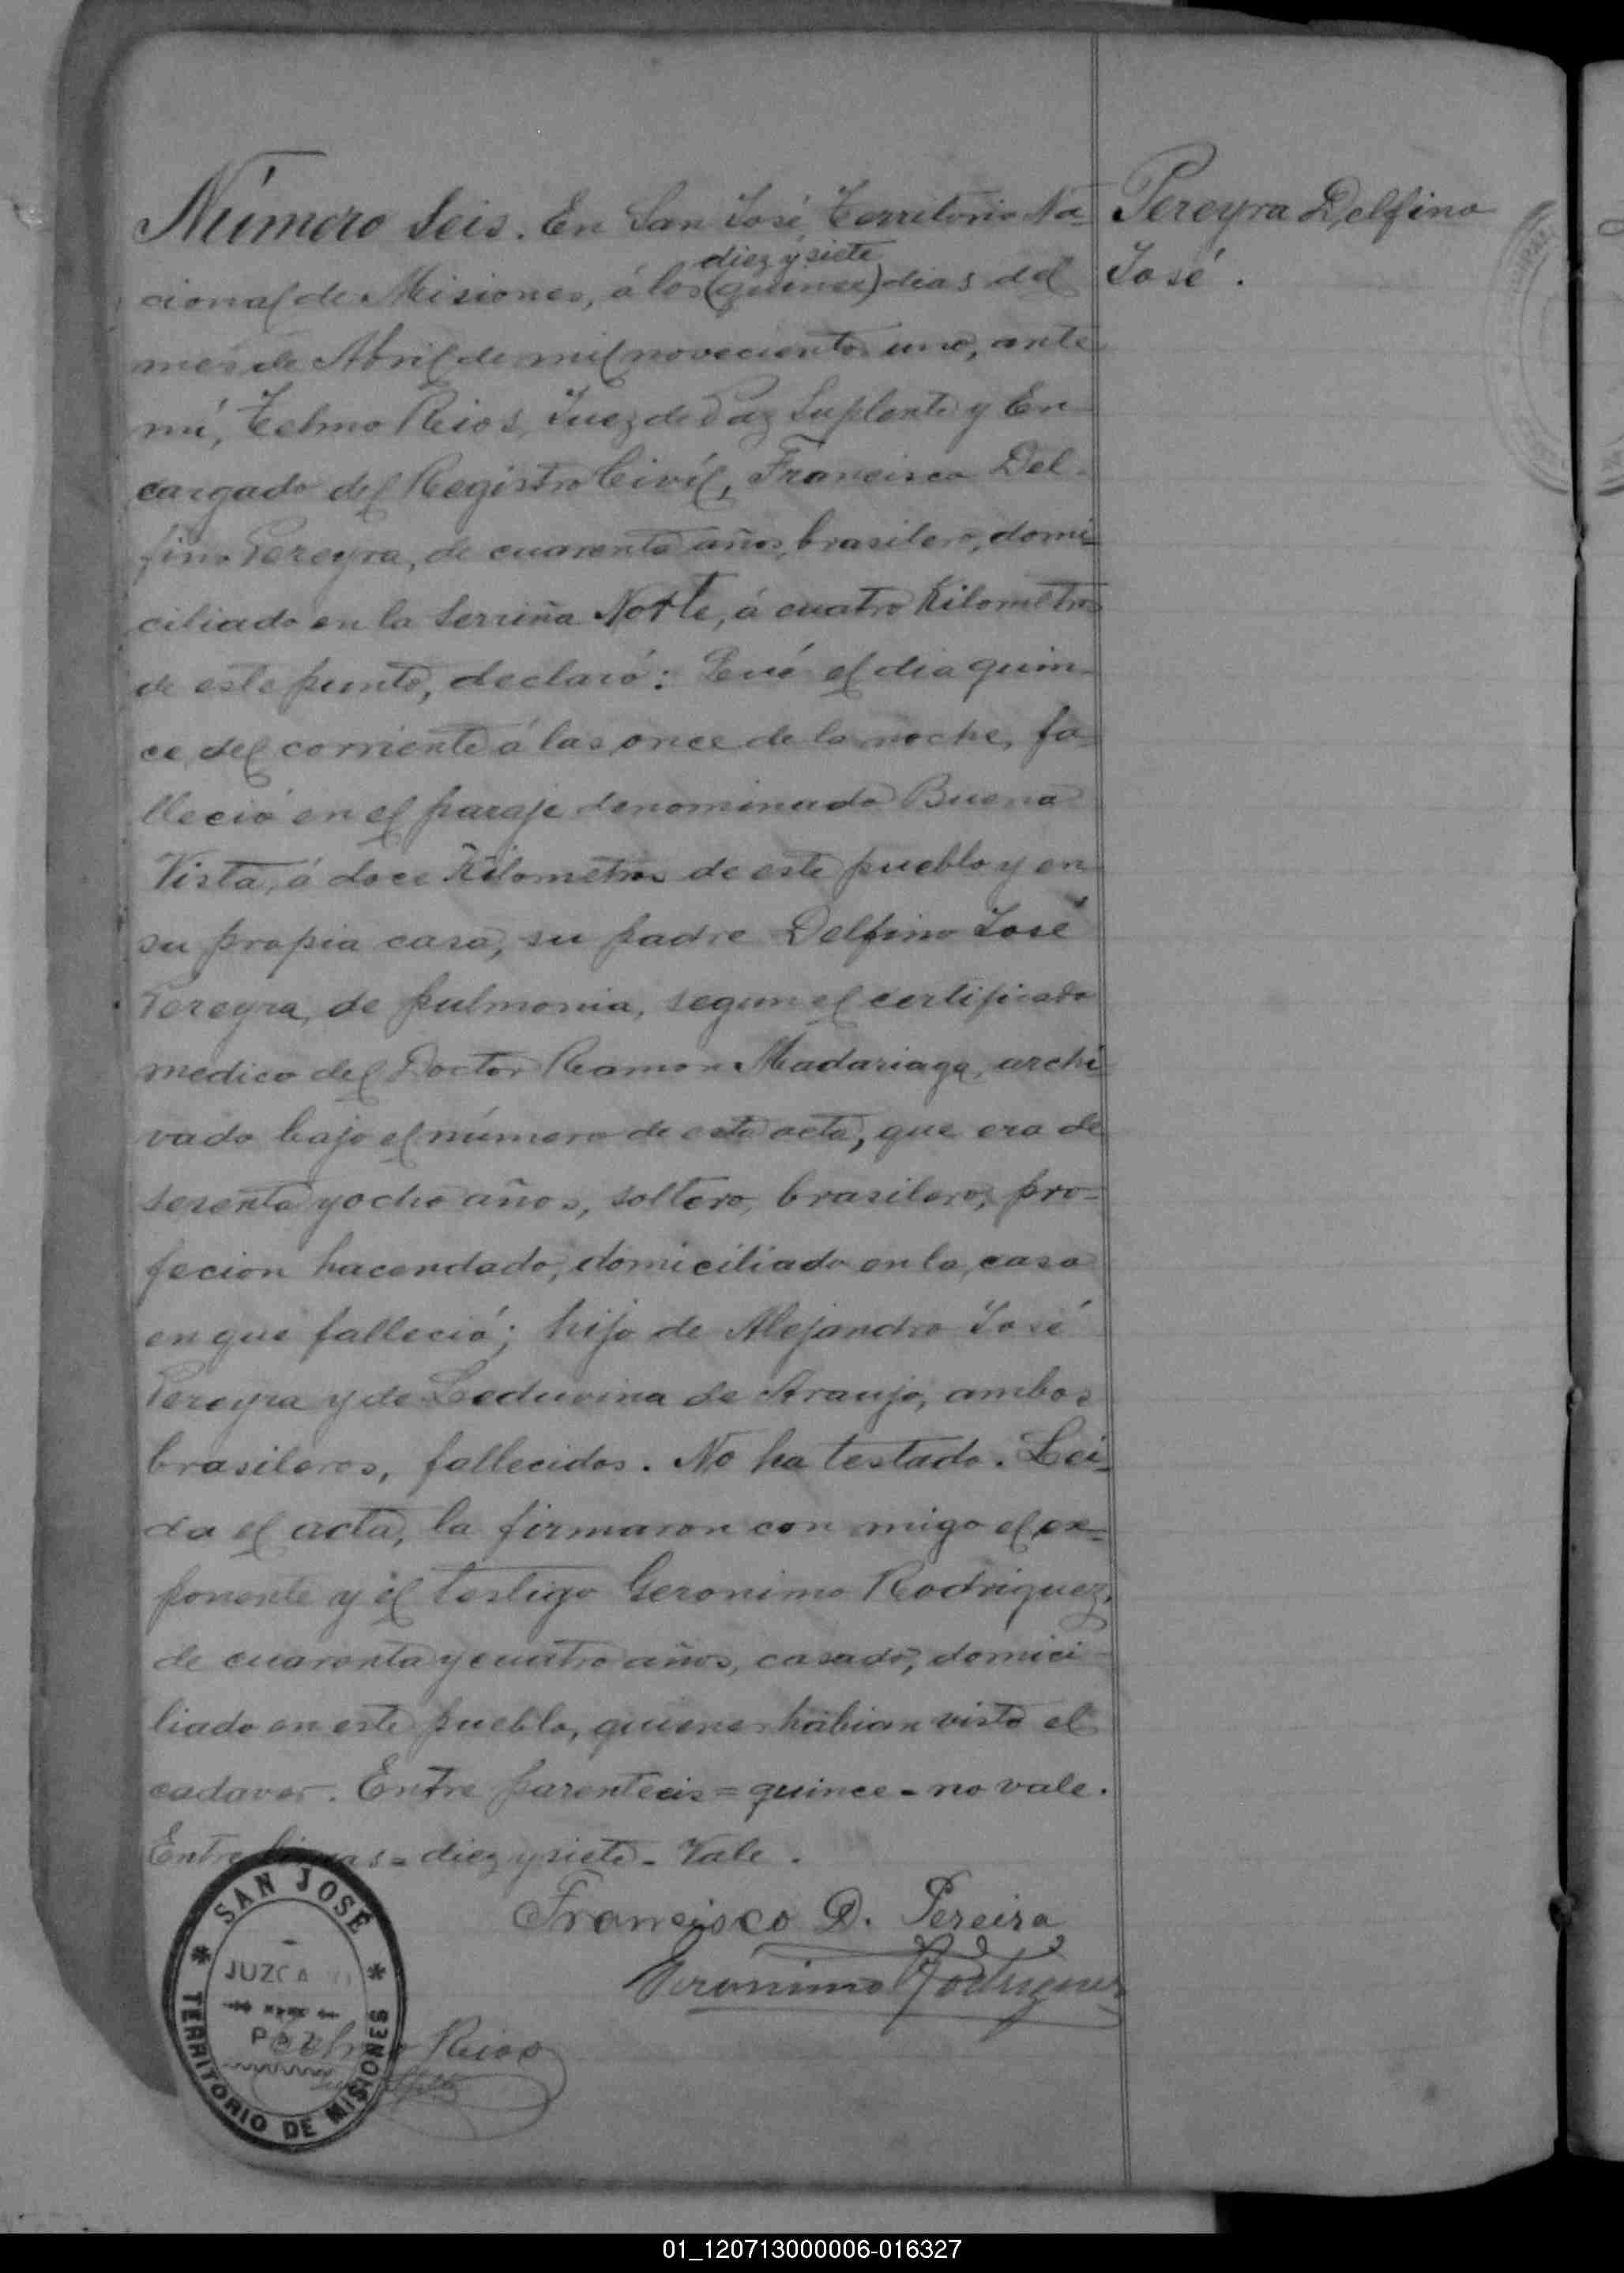 Número Seis. En San José Territorio Na-
cional de Misiones, á los (quince) dias del
diez y siete
mes de Abril de mil novecientos uno, ante
mí, Telmo Rios, Juez de Paz Suplente y En-
cargado del Registro Civíl, Francisco Del-
fino Pereyra, de cuarenta años, brasilero, domi-
ciliado en la Serriña Norte, á cuatro Kilometros
de este punto, declaró: Qué el dia quin-
ce del corriente á las once de la noche, fa-
lleció en el paraje denominado Buena
Vista, á doce Kilometros de este pueblo y en
su propia casa, su padre Delfino José
Pereyra, de pulmonia, segun el certificado
medico del Doctor Ramon Madariaga, archi-
vado bajo el número de esta acta, que era de
sesenta y ocho años, soltero, brasilero, pro-
fecion hacendado, domiciliado en la casa
en que falleció; hijo de Alejandro José
Pereyra y de Leduvina de Araujo, ambos
brasileros, fallecidos. No ha testado. Lei-
da el acta, la firmaron con migo el ex-
ponente y el testigo Geronimo Rodriguez,
de cuarenta y cuatro años, casado, domici-
liado en este pueblo, quienes habian visto el
cadaver. Entre parentecis = quince - no vale.
Entre lineas = diez y siete - Vale.
Pereyra Delfino
José.
Francisco D. Pereira
Geronimo Rodriguez
Telmo Rios
SAN JOSÉ
JUZGADO
PAZ
TERRITORIO DE MISIONES
01_120713000006-016327